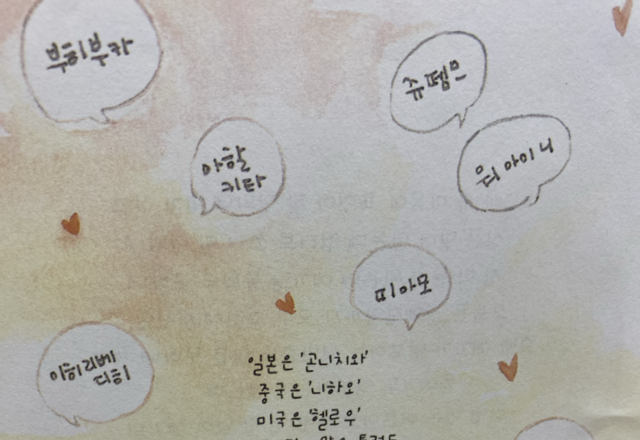 부히부카
쥬뗌므
아할
키타
워 아이 니
띠아모
이히리베
디히
일본은 '곤니치와'
중국은 '니하오'
미국은 '헬로우'